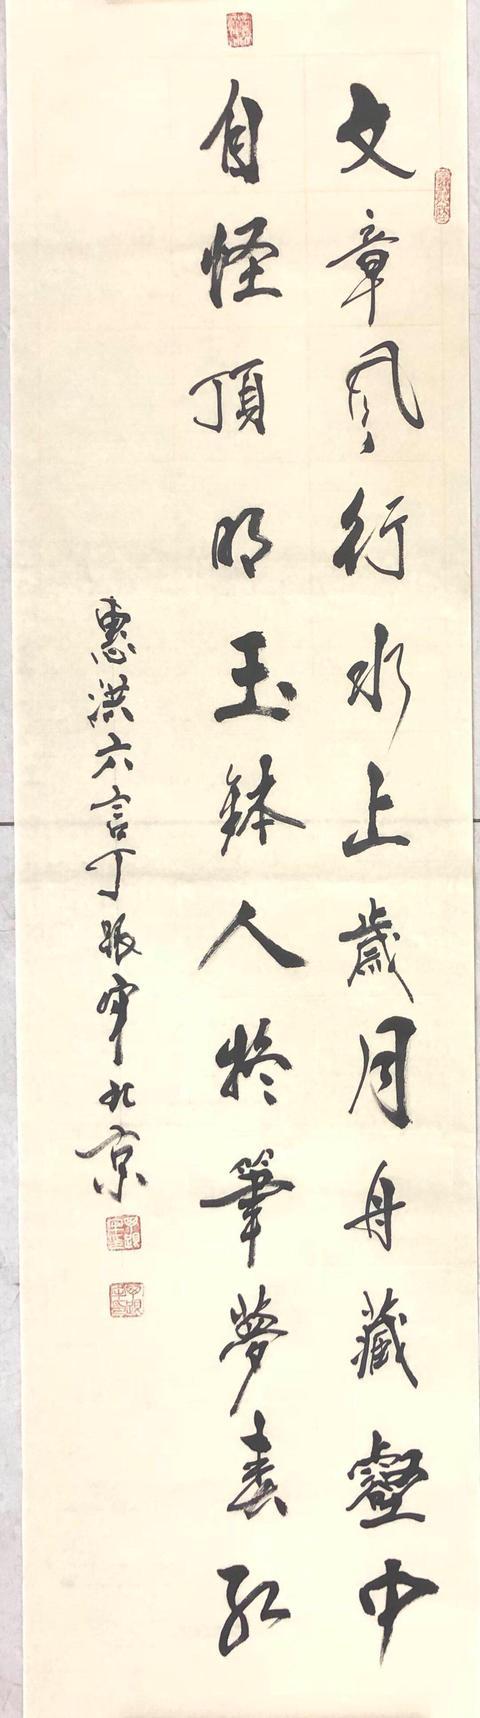 文章風行水上歲月舟藏壑中
自怪頂明玉鉢人筆夢春紅
惠洪六言丁振宇北京